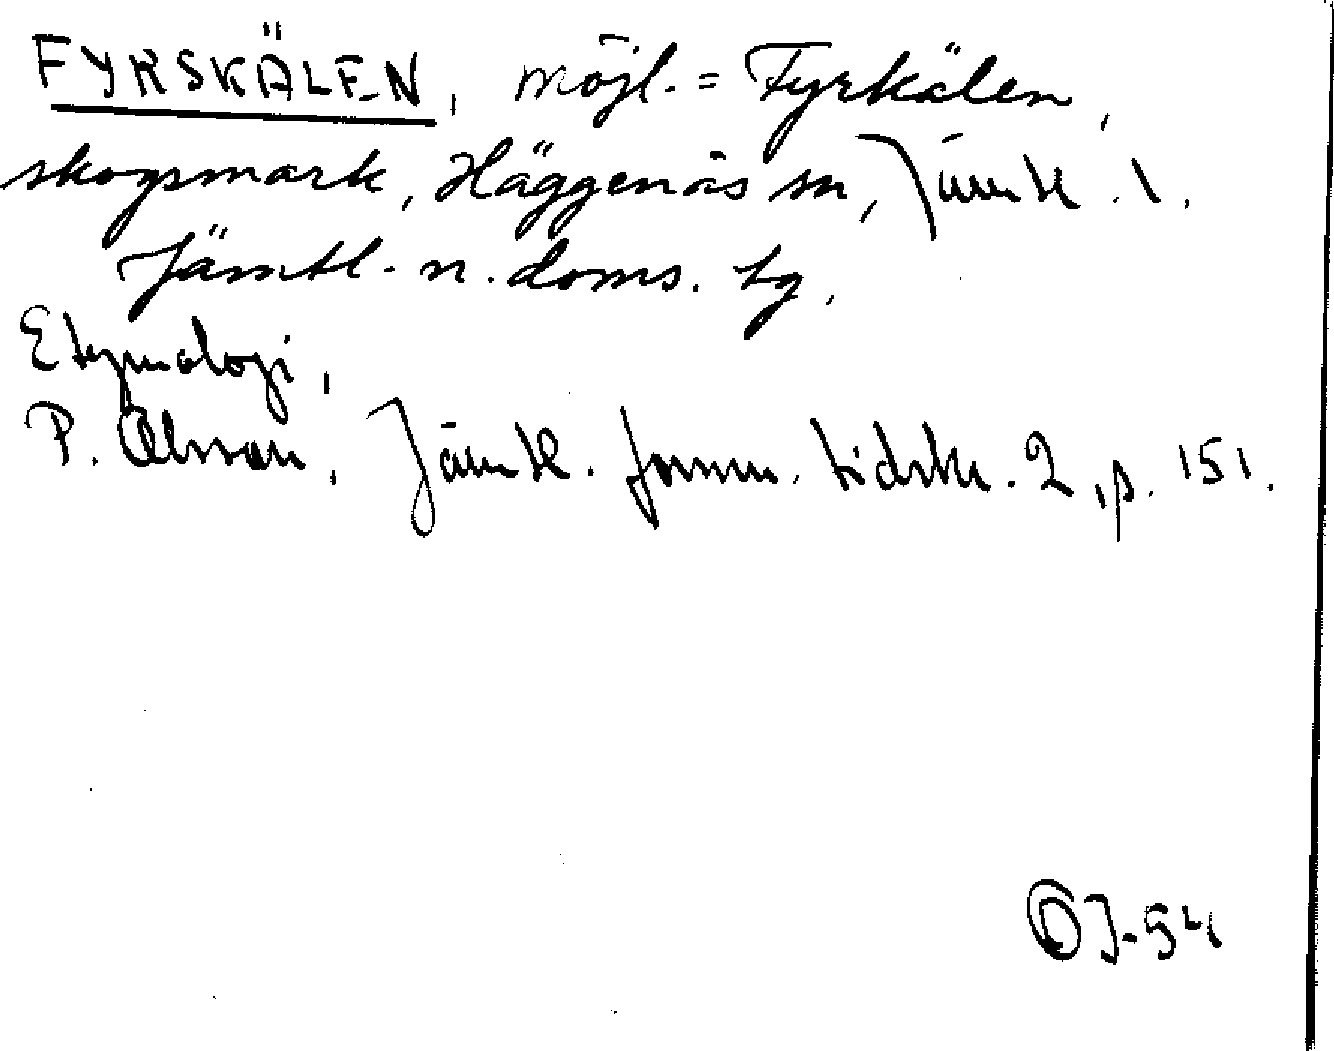 FYRSKÄLEN, möjl. = Fyrkälen,
skogsmark, Häggenås sn, Jämtl. l.
Jämtl. n. doms. tg.
Etymologi,
P. Olsson, Jämtl. fornm. tidskr. 2, p. 151.
OJ-54